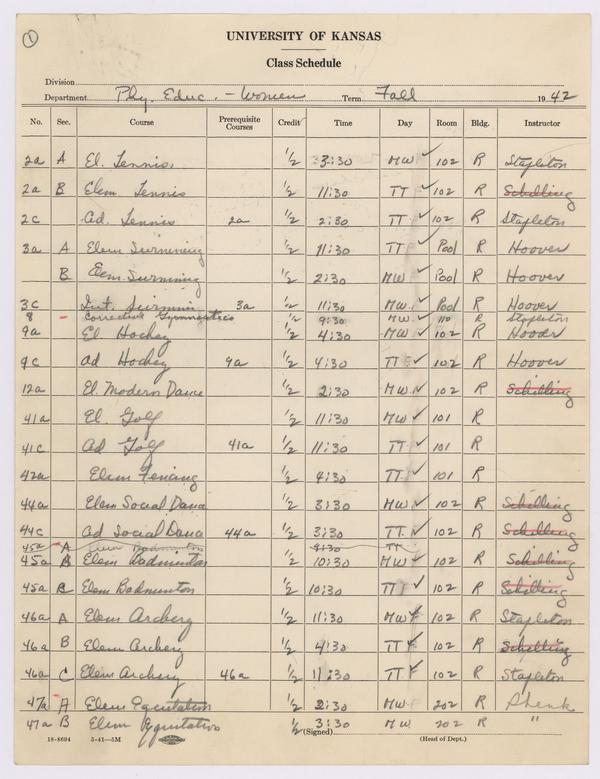 1
UNIVERSITY OF KANSAS
Class Schedule
Division
Department Phy. Educ. - Women Term Fall 1942
No. Sec. Course Prerequisite Courses Credit Time Day Room Bldg. Instructor
2a A El. Tennis. 1/2 3:30 MW ✓ 102 R Stapleton
2a B Elem Tennis 1/2 11:30 TT ✓ 102 R Schilling
2c Ad. Tennis 2a 1/2 2:30 TT ✓ 102 R Stapleton
3a A Elem Swimming 1/2 11:30 TT ✓ Pool R Hoover
B Elem. Swimming 1/2 2:30 MW ✓ Pool R Hoover
3c Int. Swimmin 3a 1/2 11:30 MW ✓ Pool R Hoover
8 - Corrective Gymnastics 1/2 9:30 MW ✓ 110 R Stapleton
9a El Hockey 1/2 4:30 MW ✓ 102 R Hoover
9c Ad Hockey 9a 1/2 4:30 TT ✓ 102 R Hoover
12a El. Modern Dance 1/2 2:30 MW ✓ 102 R Schilling
41a El. Golf 1/2 11:30 MW ✓ 101 R
41c Ad Golf 41a 1/2 11:30 TT ✓ 101 R
42a Elem Fencing 1/2 4:30 TT ✓ 101 R
44a Elem Social Dance 1/2 3:30 MW ✓ 102 R Schilling
44c Ad Social Dance 44a 1/2 3:30 TT ✓ 102 R Schilling
45a A Elem Badminton 9:30 TT
45a B Elem Badminton 1/2 10:30 MW ✓ 102 R Schilling
45a C Elem Badminton 1/2 10:30 TT ✓ 102 R Schilling
46a A Elem Archery 1/2 11:30 MW F 102 R Stapleton
46a B Elem Archery 1/2 4:30 TT F 102 R Schilling
46a C Elem Archery 46a 1/2 11:30 TT F 102 R Stapleton
47a A Elem Equitation 1/2 2:30 MW 202 R Shenk
47a B Elem Equitation 1/2 3:30 MW 202 R "
18-8694 5-41-5M (Signed) (Head of Dept.)